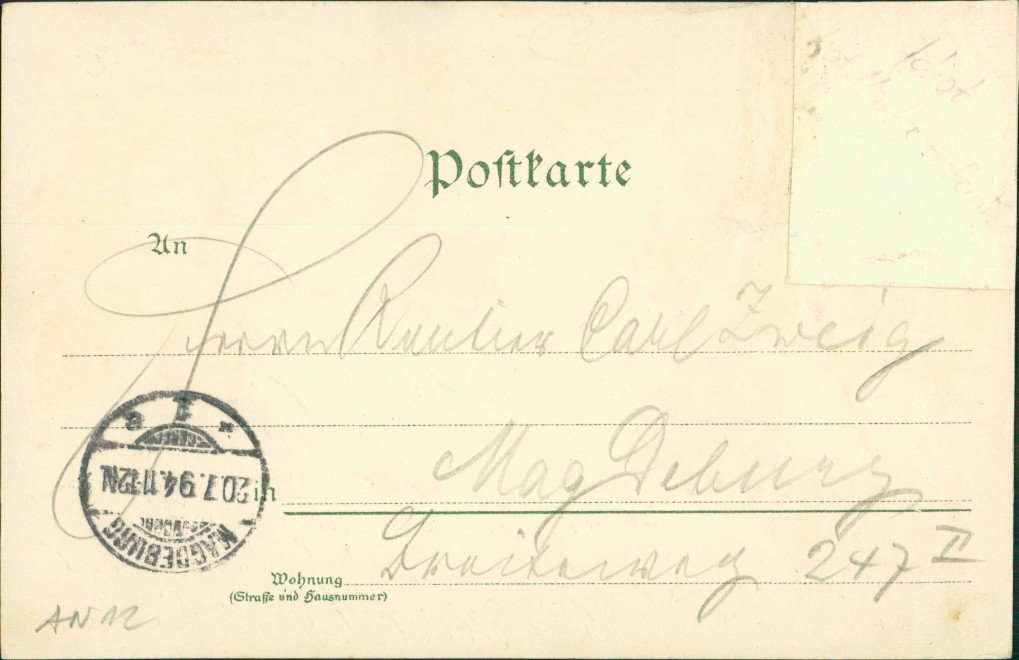 Postkarte
An
Herrn Rentier Carl Zweig
in Magdeburg
Wohnung Breiteweg 247 II
(Straße und Hausnummer)
MAGDEBURG
20.7.94.11-12N.
a
AN12